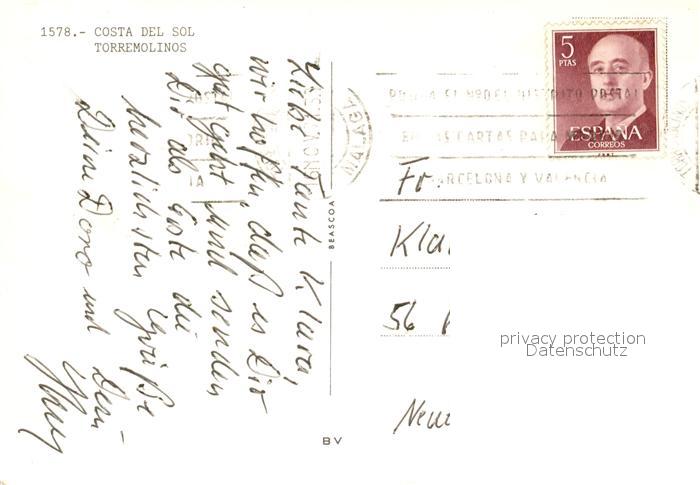 1578.- COSTA DEL SOL
TORREMOLINOS
Liebe Tante Klara,
wir hoffen, daß es Dir
gut geht und senden
Dir als Erste die
herzlichsten Grüße
Deine Doro und Dein
BEASCOA
BV
5
PTAS
ESPAÑA
CORREOS
PONGA EL Nº DEL DISTRITO POSTAL
EN LAS CARTAS PARA
BARCELONA Y VALENCIA
MALAGA
Fr.
Kla
56
Neu
privacy protection
Datenschutz